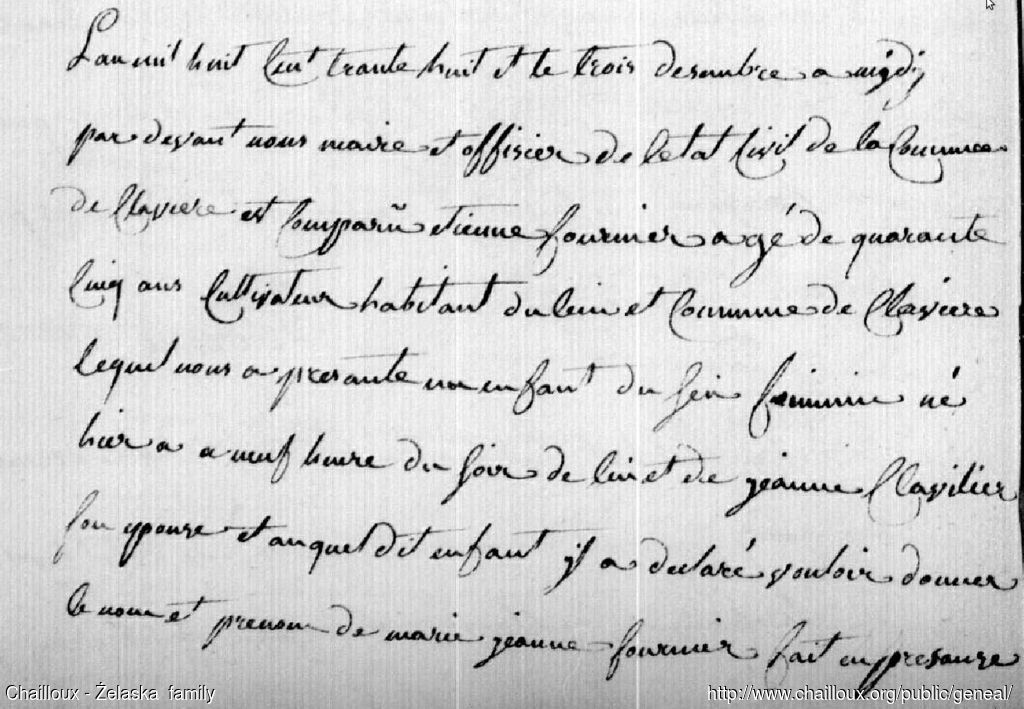 L'an mil huit Cent trante huit et le trois desambre a midy
par devant nous maire et offisier de letat Civil de la Commune
de Claviere est Comparu etienne fournier agé de quarante
Cinq ans Cultivateur habitant du lieu et Commune de Claviere
lequel nous a presante un enfant du sein feminin né
hier a a neuf heure du soir de lui et de jeanne Clavilier
son epouse et auquel dit enfant il a declaré vouloir donner
le nom et prenom de marie jeanne fournier fait en presanse
Chailloux - Żelaska family
http://www.chailloux.org/public/geneal/